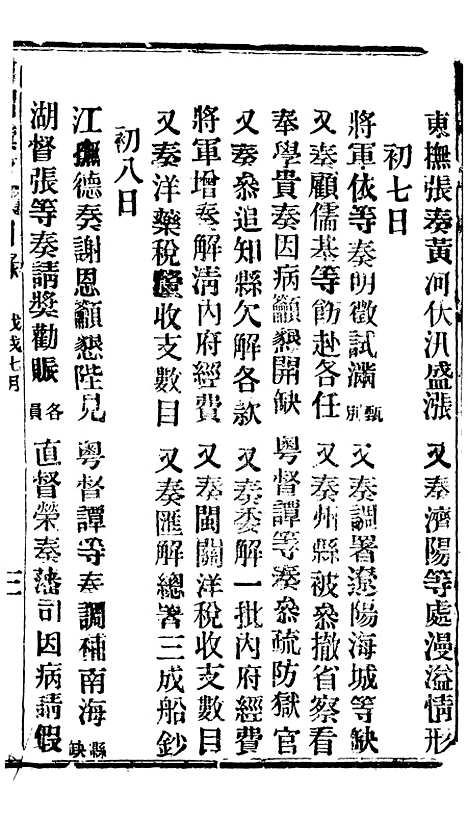 東撫張奏黃河伏汛盛漲　又奏濟陽等處漫溢情形
初七日
將軍依等奏明徵試滿甄別　又奏調署遼陽海城等缺
又奏顧儒基等飭赴各任　又奏州縣被參撤省察看
奉學貴奏因病籲懇開缺　粵督譚等奏參疏防獄官
又奏參追知縣欠解各款　又奏委解一批內府經費
將軍增奏解淸內府經費　又奏閩關洋稅收支數目
又奏洋藥稅釐收支數目　又奏匯解總署三成船鈔
初八日
江撫德奏謝恩籲懇陛見　粵督譚等奏調補南海縣缺
湖督張等奏請獎勸賑各員　直督榮奏藩司因病請假
目錄　戊戌七月　三